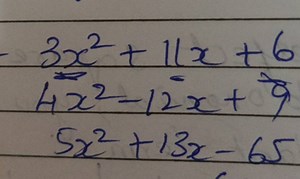 - 3x² + 11x + 6
4x² - 12x + 9
5x² + 13x - 65